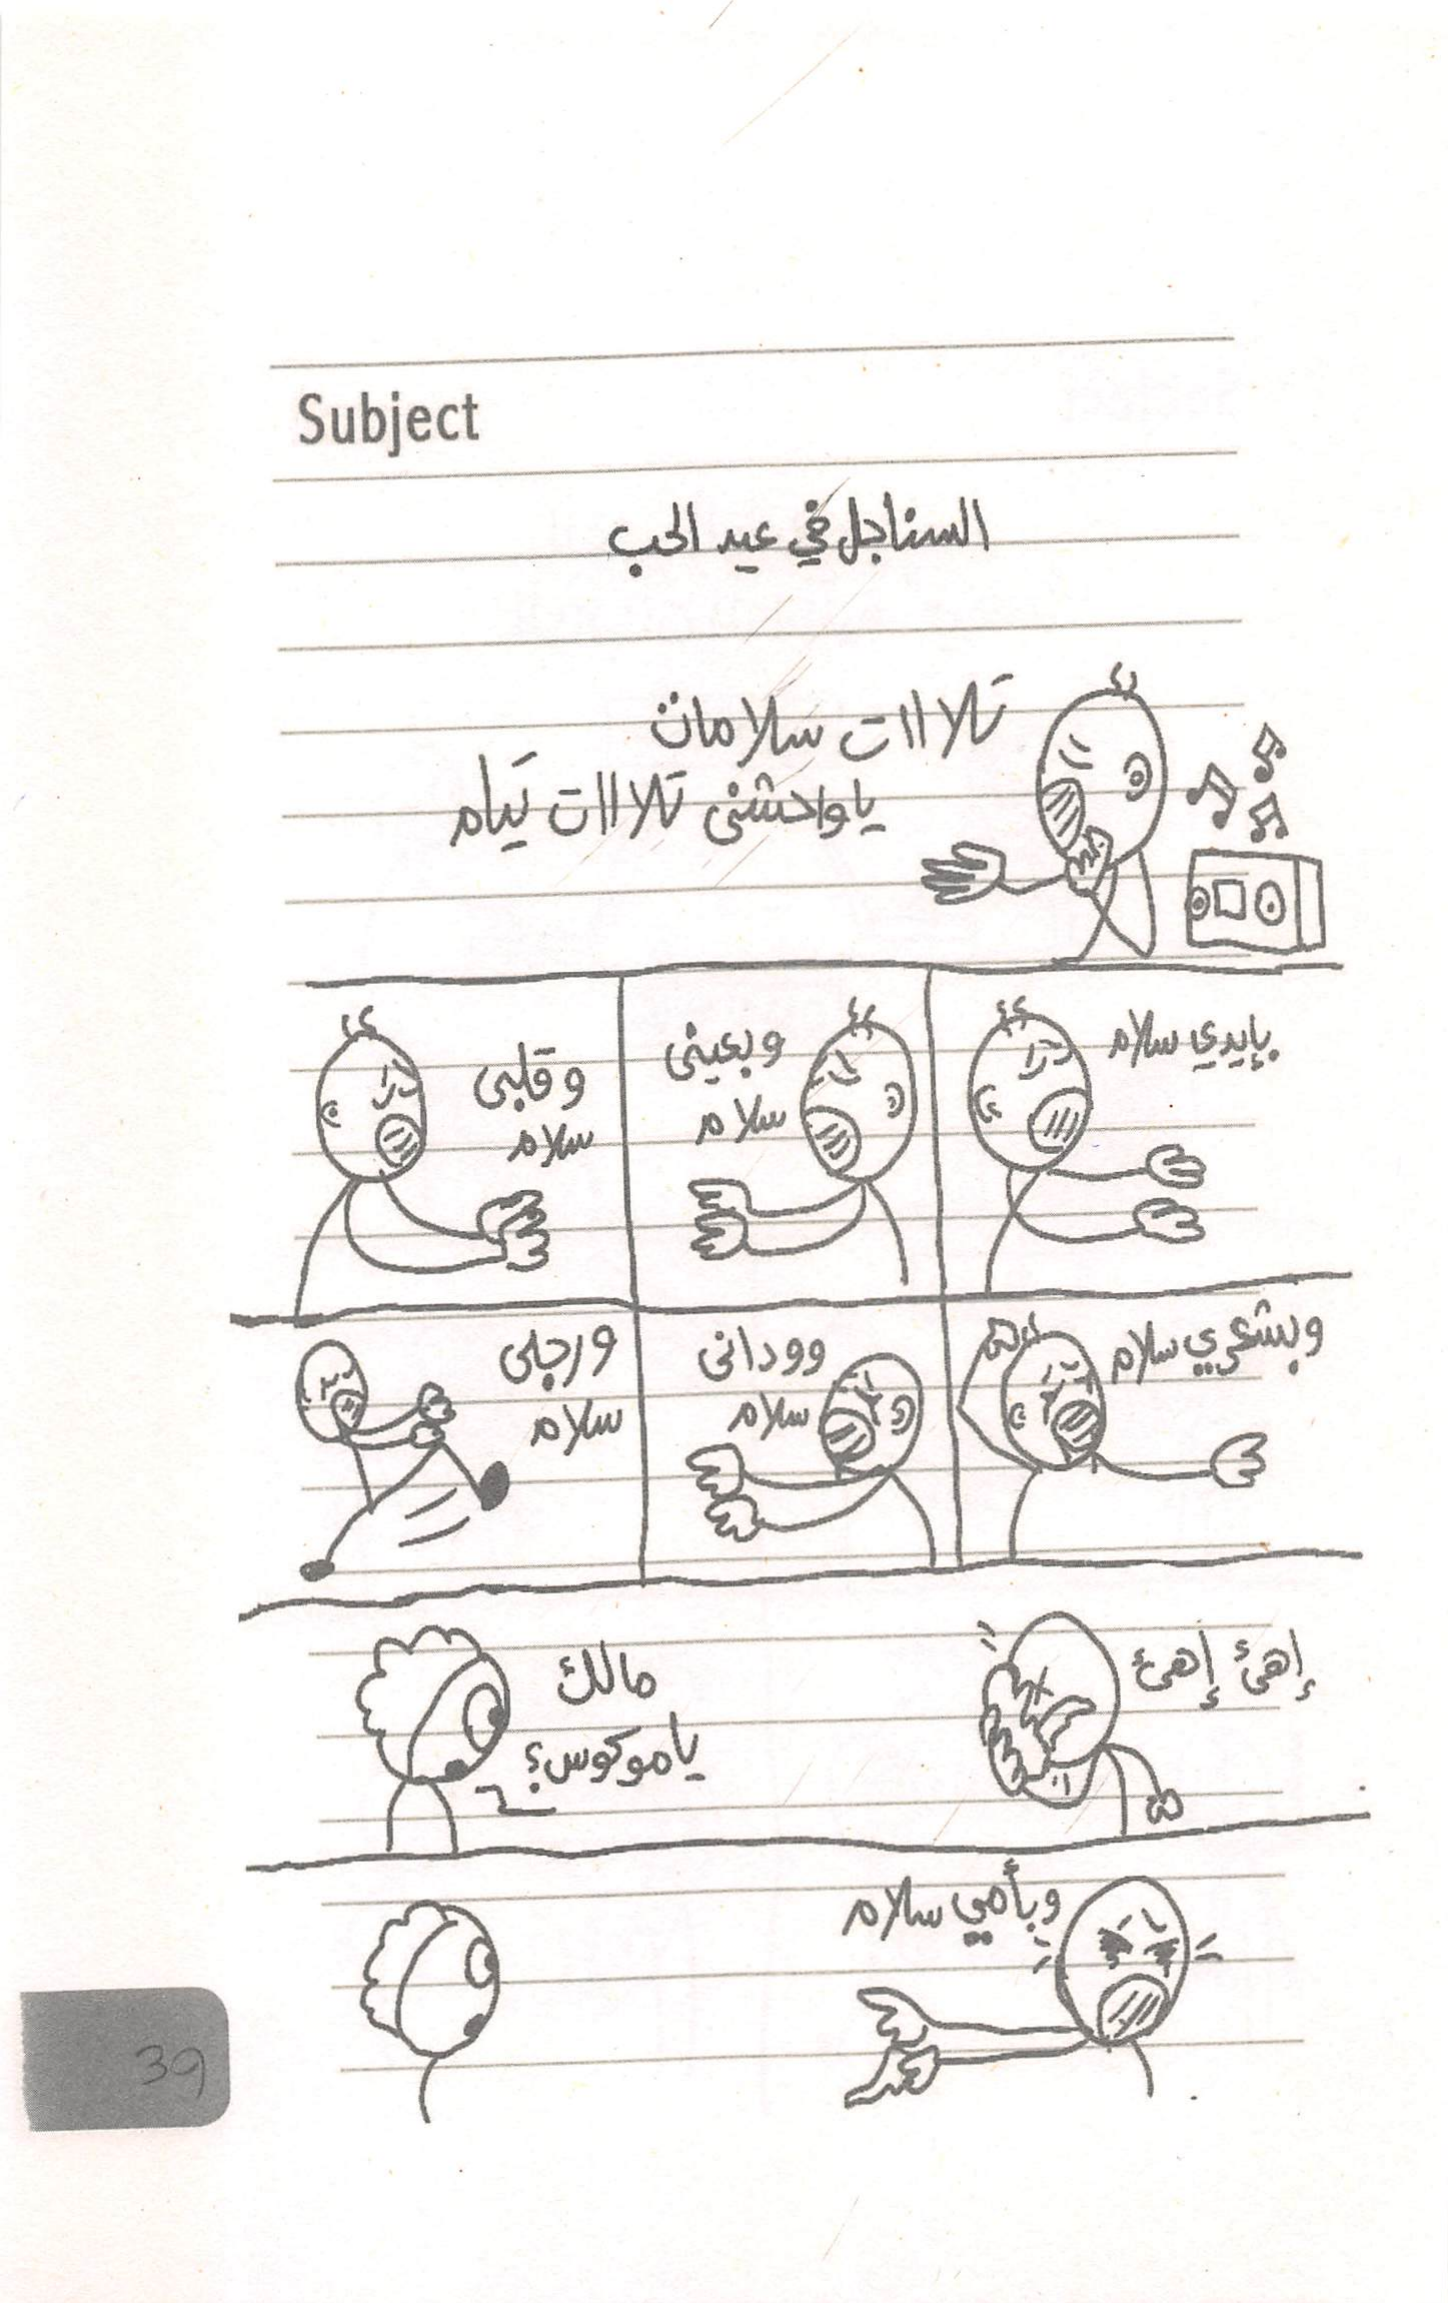 Subject
السناجل في عيد الحب
تلاااات سلامات
ياواحشنى تلاااات تيام
بإيدي سلام
وبعينى
سلام
وقلبى
سلام
وبشعري سلام
وودانى
سلام
ورجلى
سلام
إهئ إهئ
مالك
ياموكوس؟
وبأمي سلام
39